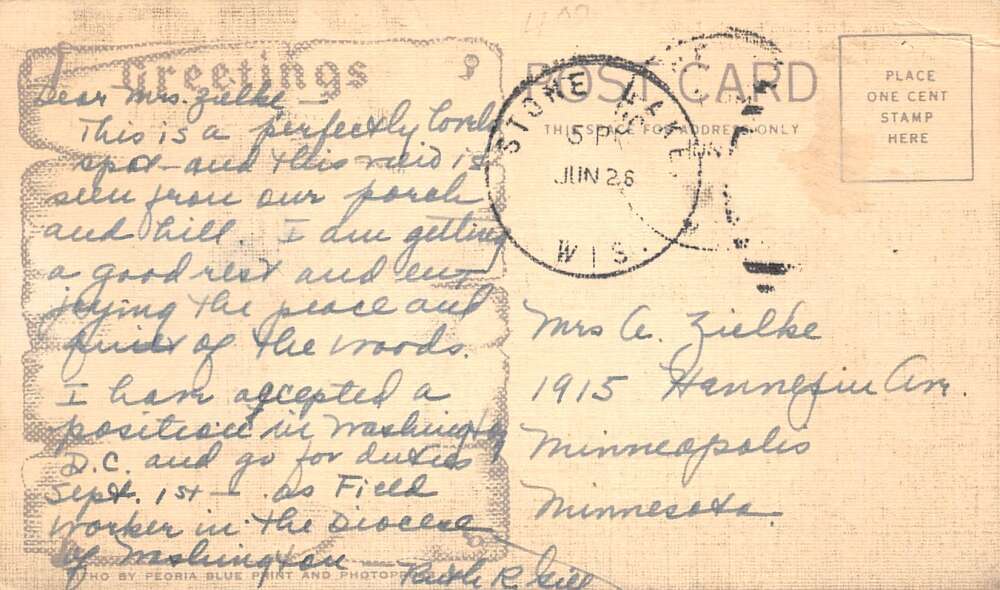 Greetings
Dear Mrs. Zielke —
This is a perfectly lovely
spot — and this view is
seen from our porch
and hill. I am getting
a good rest and en-
joying the peace and
quiet of the woods.
I have accepted a
position in Washington
D.C. and go for duties
Sept. 1st — as Field
Worker in the Diocese
of Washington —
Ruth R. Gill
LITHO BY PEORIA BLUE PRINT AND PHOTOP
POST CARD
THIS SPACE FOR ADDRESS ONLY
PLACE
ONE CENT
STAMP
HERE
STONE LAKE
5 PM
JUN 26
WIS.
JUN
Mrs A. Zielke
1915 Hennepin Ave.
Minneapolis
Minnesota.